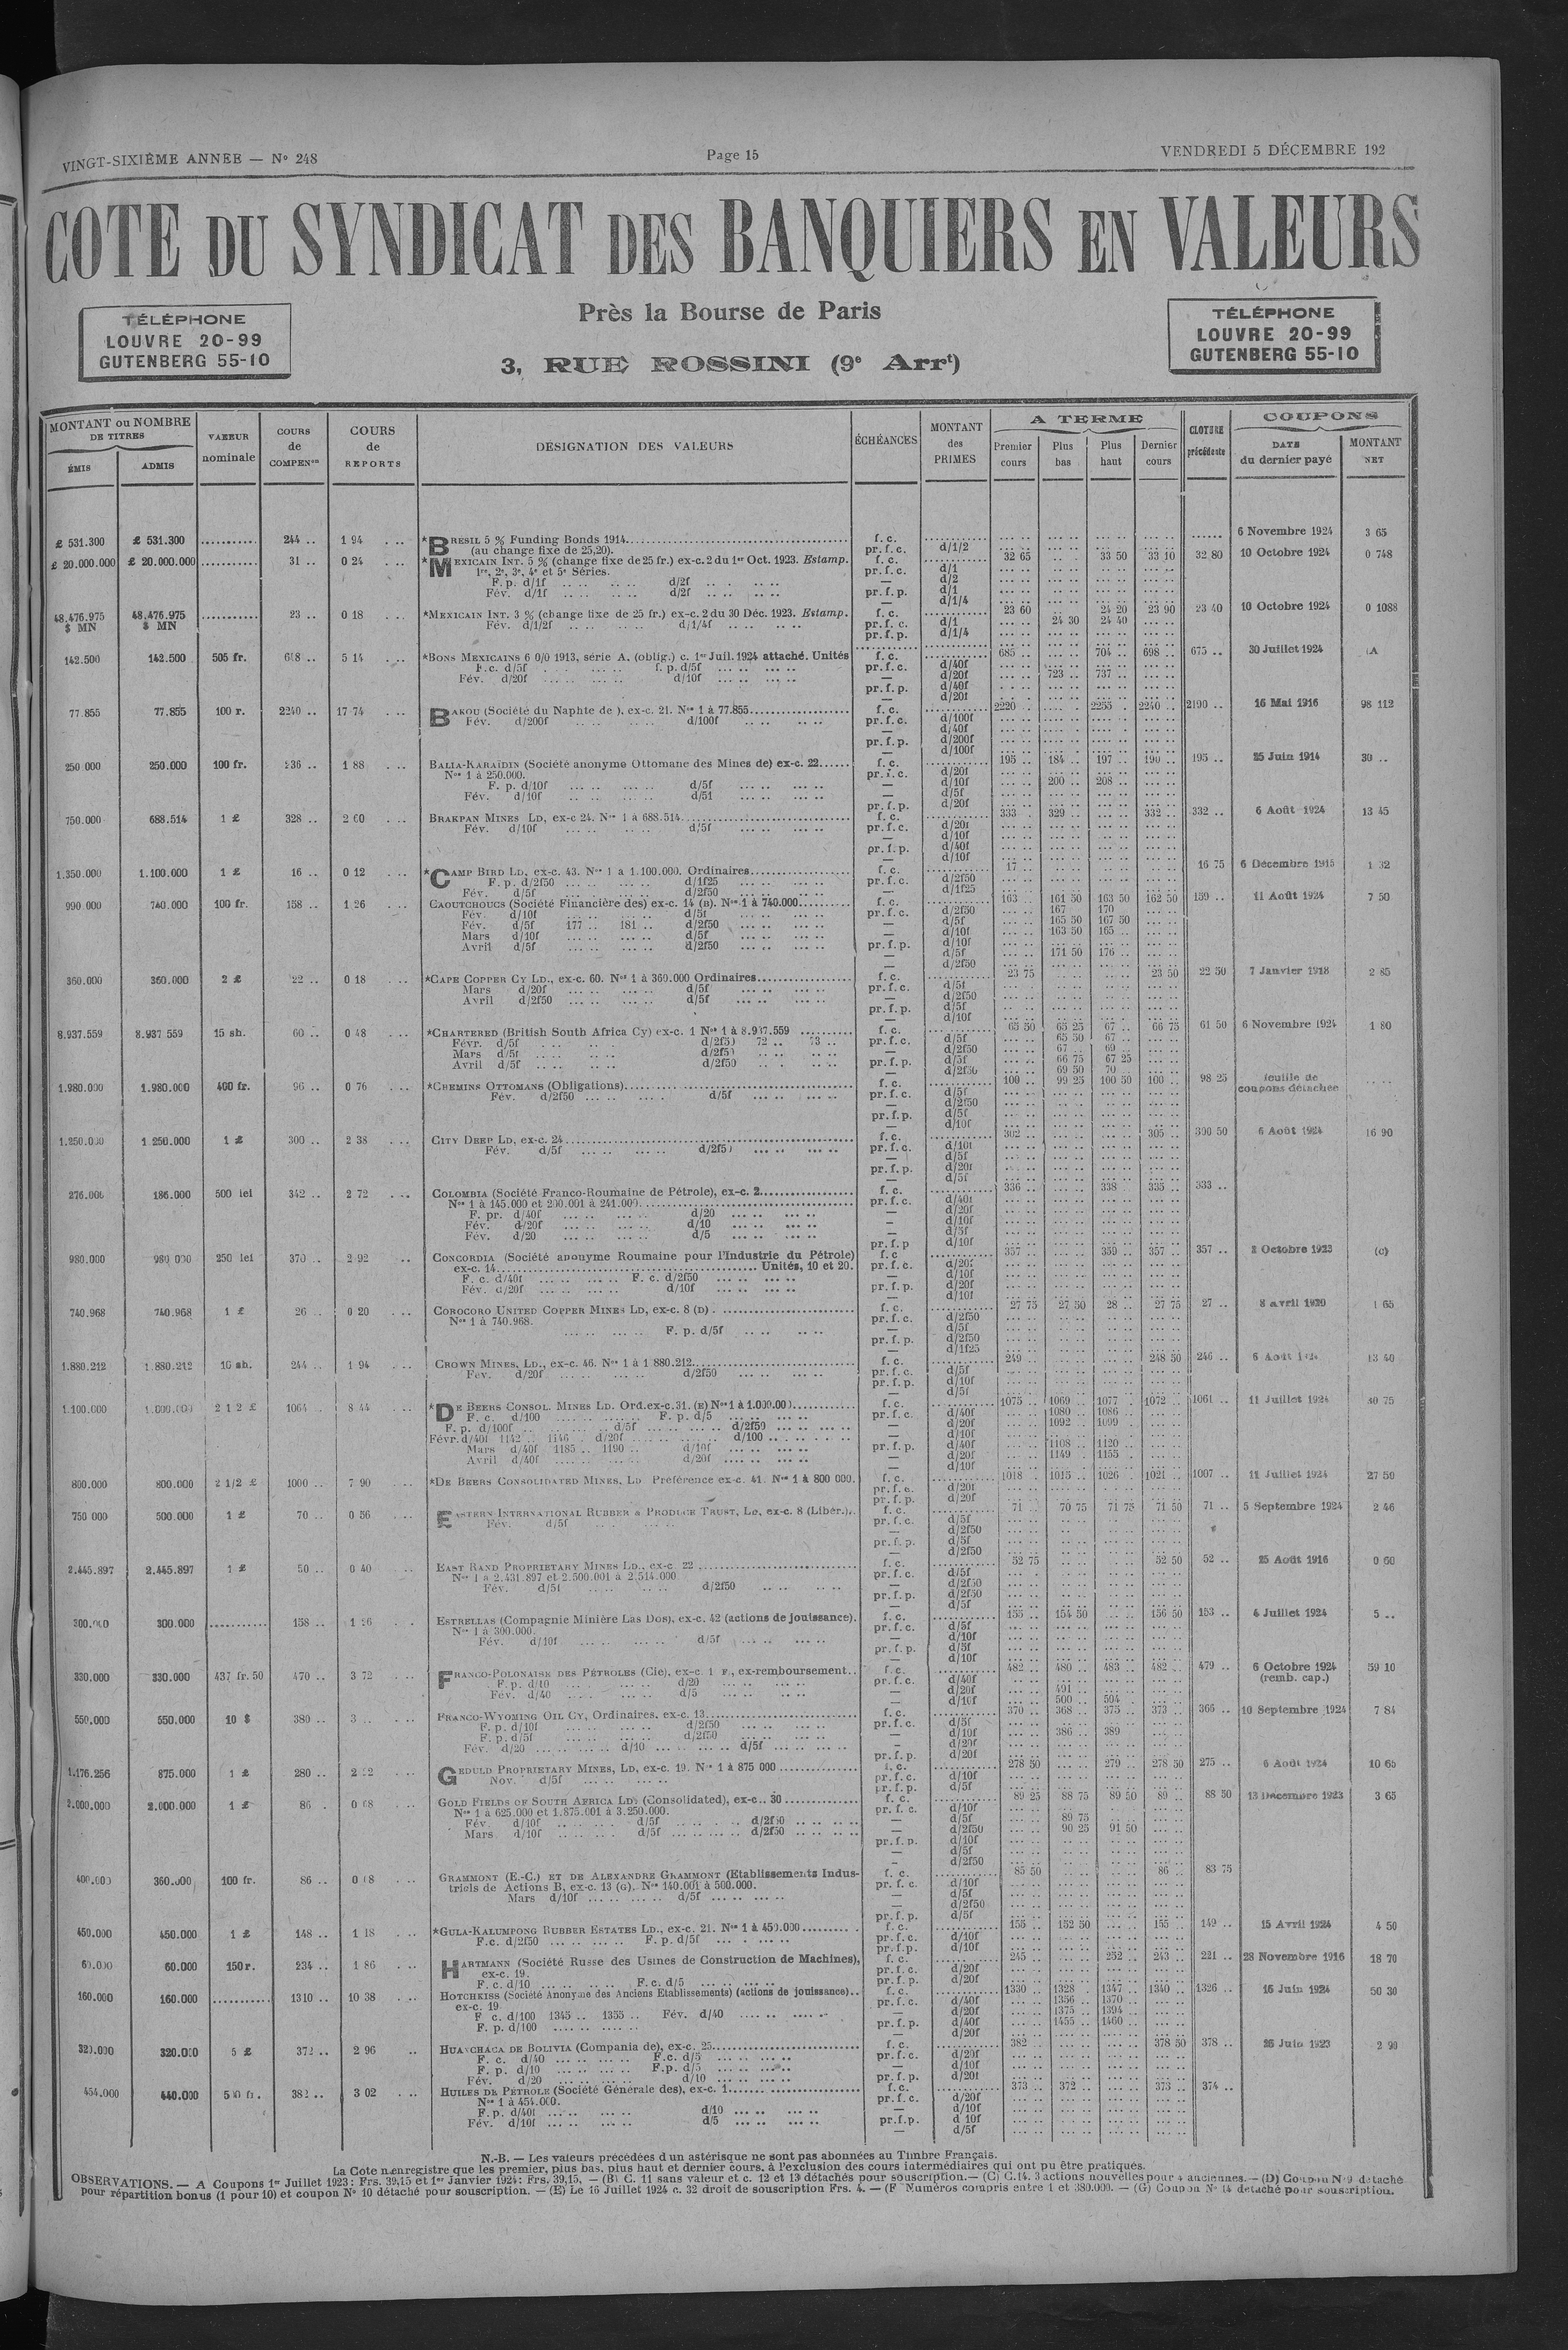 VINGT-SIXIÈME ANNÉE — N° 248 Page 15 VENDREDI 5 DÉCEMBRE 192
COTE DU SYNDICAT DES BANQUIERS EN VALEURS
Près la Bourse de Paris
3, RUE ROSSINI (9e Arrt)
TÉLÉPHONE
LOUVRE 20-99
GUTENBERG 55-10
TÉLÉPHONE
LOUVRE 20-99
GUTENBERG 55-10
MONTANT ou NOMBRE DE TITRES
ÉMIS ADMIS
VALEUR nominale
COURS de COMPENon
COURS de REPORTS
DÉSIGNATION DES VALEURS
ÉCHÉANCES
MONTANT des PRIMES
A TERME
Premier cours Plus bas Plus haut Dernier cours
CLOTURE précédente
COUPONS
DATE du dernier payé
MONTANT NET
£ 531.300 £ 531.300 ........... 244 .. 1 94 *BRESIL 5 % Funding Bonds 1914 f. c. 6 Novembre 1924 3 65
(au change fixe de 25,20). pr. f. c. d/1/2
£ 20.000.000 £ 20.000.000 ........... 31 .. 0 24 *MEXICAIN INT. 5 % (change fixe de 25 fr.) ex-c. 2 du 1er Oct. 1923. Estamp. f. c. 32 65 33 50 33 10 32 80 10 Octobre 1924 0 748
1re, 2e, 3e, 4e et 5e Séries. pr. f. c. d/1
F. p. d/1f d/2f — d/2
Fév. d/1f d/2f pr. f. p. d/1
— d/1/4
48.476.975 48.476.975 ........... 23 .. 0 18 *MEXICAIN INT. 3 % (change fixe de 25 fr.) ex-c. 2 du 30 Déc. 1923. Estamp. f. c. 23 60 24 20 23 90 23 40 10 Octobre 1924 0 1088
$ MN $ MN Fév. d/1/2f d/1/4f pr. f. c. d/1 24 30 24 40
pr. f. p. d/1/4
142.500 142.500 505 fr. 5 14 *BONS MEXICAINS 6 0/0 1913, série A, (oblig.) c. 1er Juil. 1924 attaché. Unités f. c. 685 .. 704 .. 698 .. 675 .. 30 Juillet 1924
F.c. d/5f f. p. d/5f pr. f. c. d/40f
Fév. d/20f d/10f — d/20f 723 .. 737 ..
pr. f. p. d/40f
— d/20f
77.855 77.855 100 r. 2240 .. 17 74 BAKOU (Société du Naphte de ), ex-c. 21. Nos 1 à 77.855 f. c. 2220 .. 2255 .. 2240 .. 2190 .. 16 Mai 1916 98 112
Fév. d/200f d/100f pr. f. c. d/100f
— d/40f
pr. f. p. d/200f
— d/100f
250 000 250.000 100 fr. 1 88 BALIA-KARAÏDIN (Société anonyme Ottomane des Mines de) ex-c. 22 f. c. 195 .. 184 .. 197 .. 190 .. 195 .. 25 Juin 1914 30 ..
Nos 1 à 250.000. pr. f. c. d/20f
F. p. d/10f d/5f — d/10f 200 .. 208 ..
Fév. d/10f — d/5f
pr. f. p. d/20f
750.000 688.514 1 £ 328 .. 2 60 BRAKPAN MINES LD, ex-c 24. Nos 1 à 688.514 f. c. 333 329 .. 332 .. 332 .. 6 Août 1924 13 45
Fév. d/10f d/5f pr. f. c. d/20f
— d/10f
pr. f. p. d/40f
— d/10f
1.350.000 1.100.000 1 £ 16 .. 0 12 *CAMP BIRD LD, ex-c. 43. Nos 1 à 1.100.000. Ordinaires f. c. 17 16 75 6 Décembre 1915
F. p. d/2f50 d/1f25 pr. f. c. d/2f50
Fév. d/5f d/2f50 — d/1f25
990 000 740.000 100 fr. 158 .. 1 26 CAOUTCHOUCS (Société Financière des) ex-c. 14 (B). Nos 1 à 740.000 f. c. 163 .. 161 50 163 50 162 50 159 .. 11 Août 1924 7 50
Fév. d/10f d/5f pr. f. c. d/2f50 167 170
Fév. d/5f 177 .. 181 .. d/2f50 — d/5f 165 50 167 50
Mars d/10f d/5f — d/10f 163 50 165 ..
Avril d/5f d/2f50 pr. f. p. d/10f
— d/5f 171 50 176 ..
— d/2f50
360.000 360.000 2 £ 22 .. 0 18 *CAPE COPPER CY LD., ex-c. 60. Nos 1 à 360.000 Ordinaires f. c. 23 75 23 50 22 50 7 Janvier 1918 2 85
Mars d/20f d/5f pr. f. c. d/5f
Avril d/2f50 d/5f — d/2f50
pr. f. p. d/5f
— d/10f
8.937.559 8.937 559 15 sh. 60 .. 0 48 *CHARTERED (British South Africa Cy) ex-c. 1 Nos 1 à 8.937.559 f. c. 65 50 65 25 67 .. 66 75 61 50 6 Novembre 1924 1 80
Févr. d/5f d/2f50 72 .. 73 .. pr. f. c. d/5f 65 50 67 ..
Mars d/5f d/2f50 — d/2f50 67 .. 69 ..
Avril d/5f d/2f50 pr. f. p. d/5f 66 75 67 25
— d/2f50 69 50 70 ..
1.980.000 1.980.000 400 fr. 96 .. 0 76 *CHEMINS OTTOMANS (Obligations) f. c. 100 .. 99 25 100 50 100 .. 98 25 feuille de coupons détachée
Fév. d/2f50 d/5f — d/5f
— d/2f50
pr. f. p. d/5f
— d/10f
1.250.000 1.250.000 1 £ 300 .. 2 38 CITY DEEP LD, ex-c. 24 f. c. 302 .. 305 .. 300 50 6 Août 1924 16 90
Fév. d/5f d/2f50 pr. f. c. d/10f
— d/5f
pr. f. p. d/20f
— d/5f
276.000 186.000 500 lei 342 .. 2 72 COLOMBIA (Société Franco-Roumaine de Pétrole), ex-c. 2 f. c. 336 .. 338 335 .. 333 ..
Nos 1 à 145.000 et 200.001 à 241.000 pr. f. c. d/40f
F. pr. d/40f d/20 — d/20f
Fév. d/20f d/10 — d/10f
Fév. d/20 d/5 — d/5f
pr. f. p d/10f
980.000 980 000 250 lei 370 .. 2 92 CONCORDIA (Société anonyme Roumaine pour l'Industrie du Pétrole) f. c 357 .. 359 .. 357 .. 357 .. 2 Octobre 1923 (c)
ex-c. 14 Unités, 10 et 20. pr. f. c. d/20f
F. c. d/40f F. c. d/2f50 — d/10f
Fév. d/20f d/10f pr. f. p. d/20f
— d/10f
740.968 740.968 1 £ 26 .. 0 20 COROCORO UNITED COPPER MINES LD, ex-c. 8 (D) f. c. 27 75 27 50 28 .. 27 75 27 .. 8 avril 1920 1 65
Nos 1 à 740.968. pr. f. c. d/2f50
F. p. d/5f — d/5f
pr. f. p. d/2f50
— d/1f25
1.880.212 1.880.212 10 sh. 244 .. 1 94 CROWN MINES, LD., ex-c. 46. Nos 1 à 1 880.212 f. c. 249 .. 248 50 246 .. 13 40
Fév. d/20f d/2f50 pr. f. c. d/5f
pr. f. p. d/10f
— d/5f
1.100.000 2 1 2 £ 1064 .. 8 44 *DE BEERS CONSOL. MINES LD. Ord. ex-c. 31. (E) Nos 1 à 1.000.000 f. c. 1075 .. 1069 .. 1077 .. 1072 .. 1061 .. 11 Juillet 1924
F. c. d/100 F. p. d/5 pr. f. c. d/40f 1080 .. 1086 ..
F. p. d/100f d/5f d/2f50 — d/20f 1092 .. 1099 ..
Févr. d/40f 1142 .. 1146 .. d/20f d/100 — d/10f
Mars d/40f 1185 .. 1190 .. d/10f pr. f. p. d/40f 1108 .. 1120 ..
Avril d/40f d/20f — d/20f 1149 .. 1155 ..
— d/10f
800.000 800.000 2 1/2 £ 1000 .. 7 90 *DE BEERS CONSOLIDATED MINES, LD Préférence ex-c. 41. Nos 1 à 800 000. f. c. 1018 .. 1015 .. 1026 .. 1021 .. 1007 .. 11 Juillet 1924 27 50
pr. f. c. d/20f
pr. f. p. d/20f
750 000 500.000 1 £ 70 .. 0 56 EASTERN INTERNATIONAL RUBBER & PRODUCE TRUST, LD, ex-c. 8 (Libér.) f. c. 71 .. 70 75 71 75 71 50 71 .. 5 Septembre 1924 2 46
Fév. d/5f pr. f. c. d/5f
— d/2f50
pr. f. p. d/5f
— d/2f50
2.445.897 2.445.897 1 £ 50 .. 0 40 EAST RAND PROPRIETARY MINES LD., ex-c. 22 f. c. 52 75 52 50 52 .. 25 Août 1916 0 60
Nos 1 à 2.431.897 et 2.500.001 à 2.514.000 pr. f. c. d/5f
Fév. d/5f d/2f50 — d/2f50
pr. f. p. d/2f50
— d/5f
300.000 300.000 ........... 158 .. 1 26 ESTRELLAS (Compagnie Minière Las Dos), ex-c. 42 (actions de jouissance). f. c. 155 .. 154 50 156 50 153 .. 4 Juillet 1924 5 ..
Nos 1 à 300.000. pr. f. c. d/5f
Fév. d/10f d/5f — d/10f
pr. f. p. d/5f
— d/10f
330.000 330.000 437 fr. 50 470 .. 3 72 FRANCO-POLONAISE DES PÉTROLES (Cie), ex-c. 1 F., ex-remboursement f. c. 482 .. 480 .. 483 .. 482 .. 479 .. 6 Octobre 1924 59 10
F. p. d/10 d/20 pr. f. c. d/40f (remb. cap.)
Fév. d/40 d/5 — d/20f 491 ..
— d/10f 500 .. 504
550.000 550.000 10 $ 380 .. 3 .. FRANCO-WYOMING OIL CY, Ordinaires, ex-c. 13 f. c. 370 .. 368 .. 375 .. 373 .. 366 .. 10 Septembre 1924 7 84
F. p. d/10f d/2f50 pr. f. c. d/5f
F. p. d/5f d/2f50 — d/10f 386 .. 389
Fév. d/20 d/10 d/5f — d/20f
pr. f. p. d/20f
1.176.256 875.000 1 £ 280 .. 2 22 GEDULD PROPRIETARY MINES, LD, ex-c. 19. Nos 1 à 875 000 f. c. 278 50 279 .. 278 50 275 .. 6 Août 1924 10 65
Nov. d/5f pr. f. c. d/10f
pr. f. p. d/5f
2.000.000 2.000.000 1 £ 86 . 0 68 GOLD FIELDS OF SOUTH AFRICA LD (Consolidated), ex-c. 30 f. c. 89 25 88 75 89 50 89 .. 88 50 13 Décembre 1923 3 65
Nos 1 à 625.000 et 1.875.001 à 3.250.000. pr. f. c. d/10f
Fév. d/10f d/5f d/2f50 — d/5f 89 75
Mars d/10f d/5f d/2f50 — d/2f50 90 25 91 50
pr. f. p. d/10f
— d/5f
— d/2f50
400.000 360.000 100 fr. 86 .. 0 68 GRAMMONT (E.-C.) ET DE ALEXANDRE GRAMMONT (Etablissements Indus- f. c. 85 50 86 .. 83 75
triels de Actions B, ex-c. 13 (G). Nos 140.001 à 500.000. pr. f. c. d/10f
Mars d/10f d/5f — d/5f
— d/2f50
pr. f. p. d/5f
450.000 450.000 1 £ 148 .. 1 18 *GULA-KALUMPONG RUBBER ESTATES LD., ex-c. 21. Nos 1 à 450.000 f. c. 155 .. 152 50 155 .. 149 .. 15 Avril 1924 4 50
F.c. d/2f50 F. p. d/5f pr. f. c. d/10f
pr. f. p. d/10f
60.000 60.000 150 r. 234 .. 1 86 HARTMANN (Société Russe des Usines de Construction de Machines), f. c. 245 .. 252 .. 243 .. 221 .. 28 Novembre 1916 18 70
ex-c. 19. pr. f. c. d/20f
F. c. d/10 F. c. d/5 pr. f. p. d/20f
160.000 160.000 ........... 1310 .. 10 38 HOTCHKISS (Société Anonyme des Anciens Etablissements) (actions de jouissance) f. c. 1330 .. 1328 . 1347 .. 1340 .. 1326 .. 16 Juin 1924 50 30
ex-c. 19 pr. f. c. d/40f 1356 .. 1370 ..
F c. d/100 1345 .. 1355 .. Fév. d/40 — d/20f 1375 .. 1394 ..
F. p. d/100 pr. f. p. d/40f 1455 .. 1460 ..
— d/20f
320.000 320.000 5 £ 372 .. 2 96 HUANCHACA DE BOLIVIA (Compania de), ex-c. 25 f. c. 382 .. 378 50 378 .. 26 Juin 1923 2 90
F. c. d/40 F.c. d/5 pr. f. c. d/20f
F. p. d/10 F.p. d/5 — d/10f
Fév. d/20 d/10 pr. f. p. d/20f
454.000 440.000 500 fr. 382 .. 3 02 HUILES DE PÉTROLE (Société Générale des), ex-c. 1 f. c. 373 .. 372 .. 373 .. 374 ..
Nos 1 à 454.000. pr. f. c. d/20f
F. p. d/40f d/10 — d/10f
Fév. d/10f d/5 pr. f. p. d 10f
— d/5f
N.-B. — Les valeurs précédées d'un astérisque ne sont pas abonnées au Timbre Français.
La Cote n'enregistre que les premier, plus bas, plus haut et dernier cours, à l'exclusion des cours intermédiaires qui ont pu être pratiqués.
OBSERVATIONS. — A Coupons 1er Juillet 1923: Frs. 39,15 et 1er Janvier 1924: Frs. 39,15. — (B) C. 11 sans valeur et c. 12 et 13 détachés pour souscription. — (C) C.14. 3 actions nouvelles pour 4 anciennes. — (D) Coupon N° 9 détaché
pour répartition bonus (1 pour 10) et coupon N° 10 détaché pour souscription. — (E) Le 16 Juillet 1924 c. 32 droit de souscription Frs. 4. — (F Numéros compris entre 1 et 380.000. — (G) Coupon N° 14 détaché pour souscription.